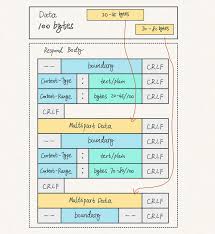 Data
100 bytes
20-46 bytes
70-86 bytes
Respond Body
-- boundary CRLF
Content-Type : text/plain CRLF
Content-Range : bytes 20-46/100 CRLF
CRLF
Multipart Data CRLF
-- boundary CRLF
Content-Type : text/plain CRLF
Content-Range : CRLF
CRLF
Multipart Data CRLF
-- boundary -- CRLF